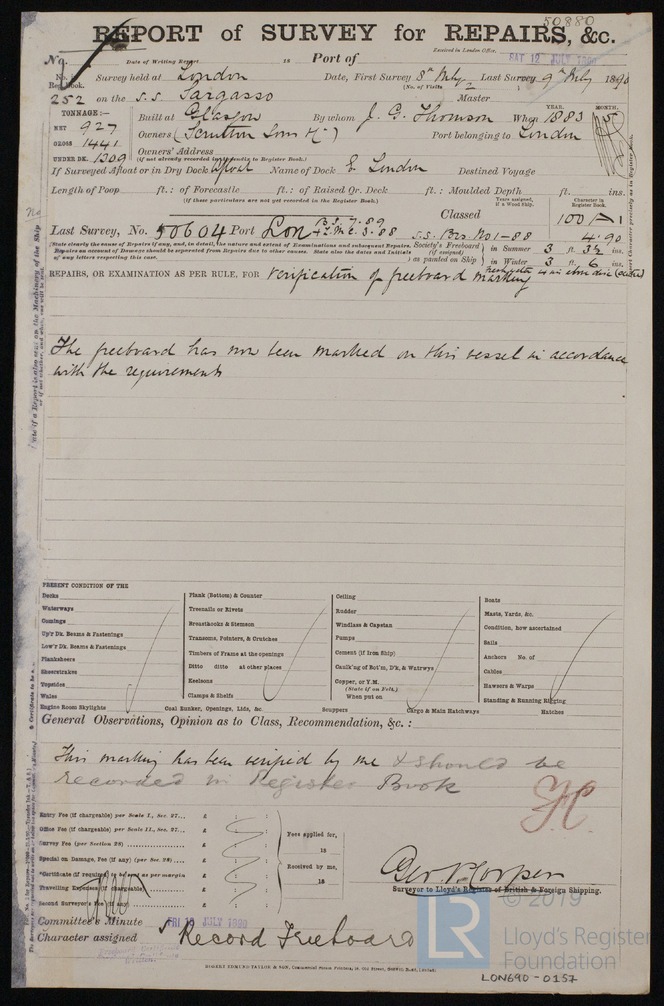 50880
REPORT of SURVEY for REPAIRS, &c.
No. Date of Writing Report 18 Port of Received in London Office, SAT 12 JULY 1890
No. in Reg. Book. Survey held at London Date, First Survey 8th July Last Survey 9th July 1890
(No. of Visits )
252 on the S.S. Sargasso Master
TONNAGE:— Built at Glasgow By whom J. G. Thomson When 1883 YEAR. MONTH. 5
NET 927
GROSS 1441 Owners (Scrutton Sons & Co) Port belonging to London
UNDER DK. 1309 Owners' Address
(if not already recorded in Appendix to Register Book.)
If Surveyed Afloat or in Dry Dock Afloat Name of Dock E London Destined Voyage
Length of Poop ft.: of Forecastle ft.: of Raised Qr. Deck ft.: Moulded Depth ft. ins.
(If these particulars are not yet recorded in the Register Book.) Years assigned, if a Wood Ship. Character in Register Book.
Classed 100 A 1
Last Survey, No. 50604 Port Lon B.S. 7.89 + L.M.C. 3.88 S.S. No 1-88 4.90
(State clearly the nature of Repairs if any, and, in detail, the nature and extent of Examinations and subsequent Repairs. Repairs on account of Damage should be separated from Repairs due to other causes. State also the dates and Initials of any letters respecting this case.
Society's Freeboard (if assigned) as painted on Ship in Summer 3 ft. 3½ ins.
in Winter 3 ft. 6 ins.
REPAIRS, OR EXAMINATION AS PER RULE, FOR Verification of freeboard marking
The freeboard has now been marked on this vessel in accordance
with the requirements
PRESENT CONDITION OF THE
Decks
Waterways
Comings
Up'r Dk. Beams & Fastenings
Low'r Dk. Beams & Fastenings
Planksheers
Sheerstrakes
Topsides
Wales
Engine Room Skylights
Plank (Bottom) & Counter
Treenails or Rivets
Breasthooks & Stemson
Transoms, Pointers, & Crutches
Timbers of Frame at the openings
Ditto ditto at other places
Keelsons
Clamps & Shelfs
Coal Bunker, Openings, Lids, &c.
Ceiling
Rudder
Windlass & Capstan
Pumps
Cement (if Iron Ship)
Caulk'ng of Bot'm, D'k, & Watrwys
Copper, or Y.M.
(State if on Felt.)
When put on
Scuppers
Cargo & Main Hatchways
Boats
Masts, Yards, &c.
Condition, how ascertained
Sails
Anchors No. of
Cables
Hawsers & Warps
Standing & Running Rigging
Hatches
General Observations, Opinion as to Class, Recommendation, &c.:
This marking has been verified by me & should be
recorded in Register Book
Entry Fee (if chargeable) per Scale I., Sec. 27... £
Office Fee (if chargeable) per Scale II., Sec. 27... £
Survey Fee (per Section 28) £
Special on Damage, Fee (if any) (per Sec. 28) £
Certificate (if required) to be sent as per margin £
Travelling Expenses (if chargeable) £
Second Surveyor's Fee (if any) £
Fees applied for,
18
Received by me,
18
Geo. P. Cooper
Surveyor to Lloyd's Register of British & Foreign Shipping.
Committee's Minute FRI 18 JULY 1890
Character assigned Record Freeboard
© 2019
LR
Lloyd's Register
Foundation
LON690-0157